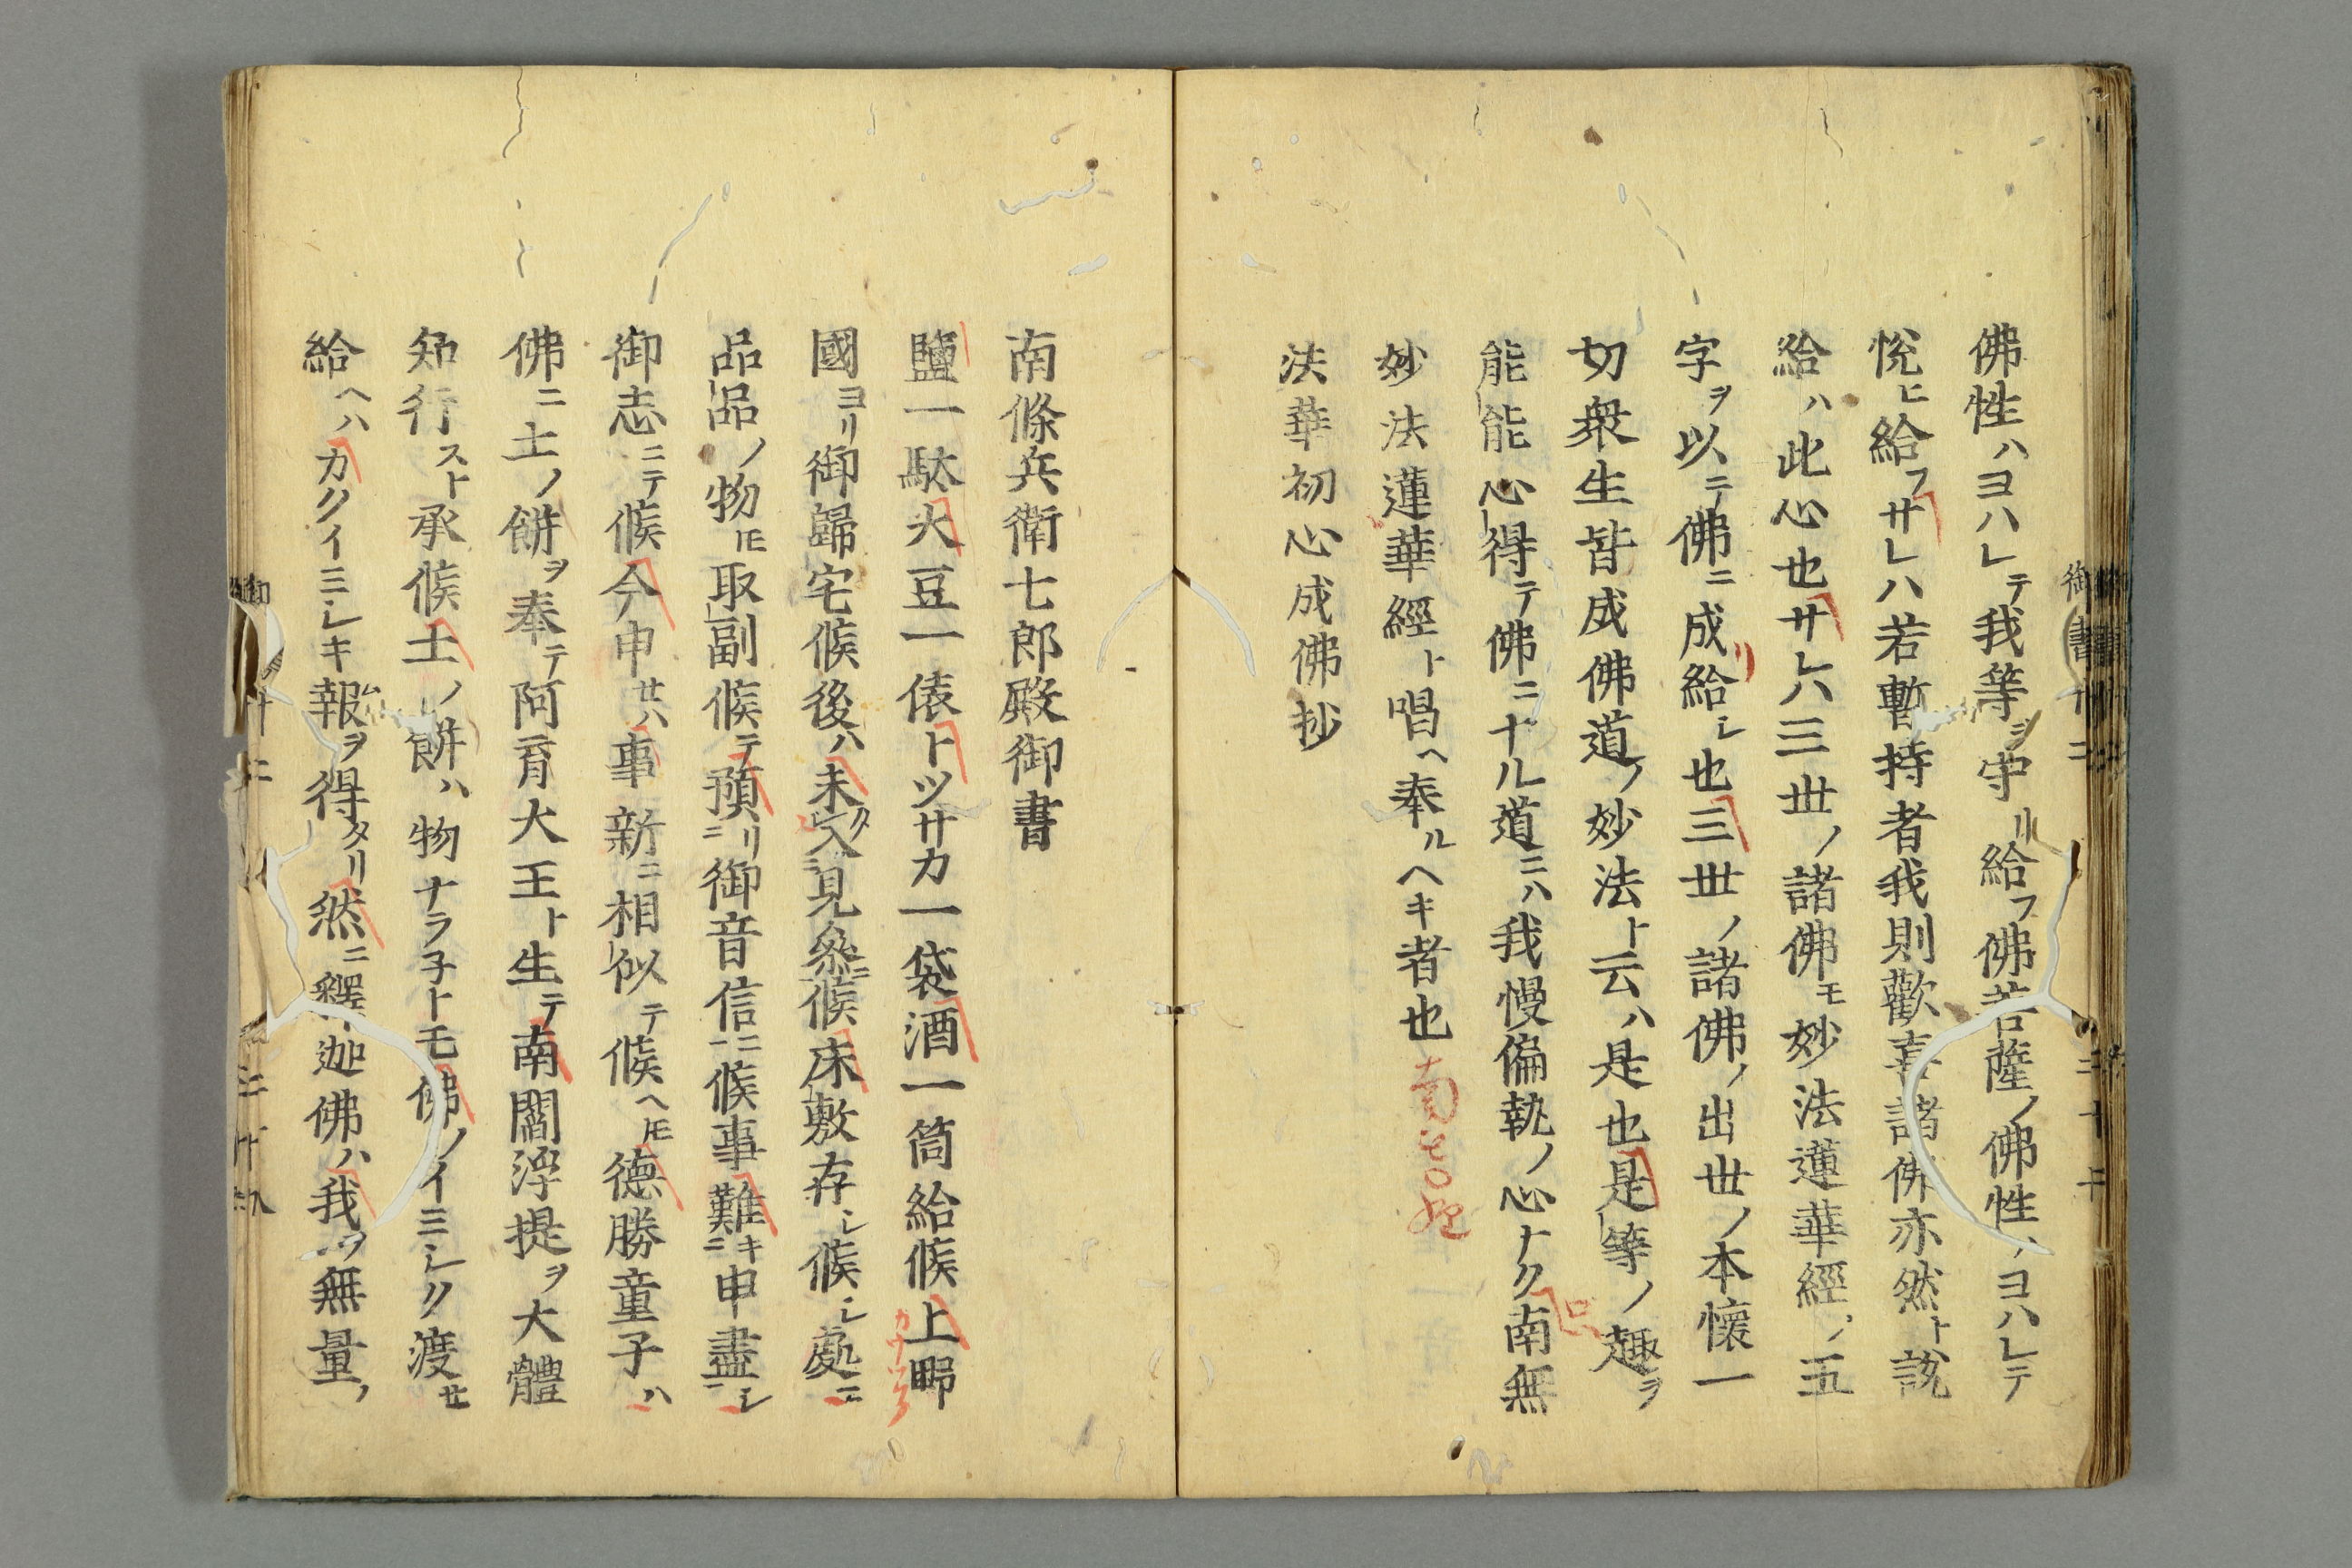 佛性ハヨハレテ我等ヲ守リ給フ佛菩薩ノ佛性ハヨハレテ
悅ヒ給フサレハ若暫持者我則歡喜諸佛亦然ト說
給ハ此心也サレハ三世ノ諸佛モ妙法蓮華經ノ五
字ヲ以テ佛ニ成給シ也三世ノ諸佛ノ出世ノ本懷一
切衆生皆成佛道ノ妙法ト云ハ是也是等ノ趣ヲ
能能心得テ佛ニナル道ニハ我慢偏執ノ心ナク南無
妙法蓮華經ト唱ヘ奉ルヘキ者也
法華初心成佛抄
南條兵衛七郎殿御書
鹽一駄大豆一俵トツサカ一袋酒一筒給候上野
國ヨリ御歸宅候後ハ未入見參候床敷存シ候シ處ニ
品品ノ物トモ取副候テ預リ御音信ニ候事難キ申盡シ
御志ニテ候今申セハ事新ニ相似テ候ヘトモ德勝童子ハ
佛ニ土ノ餅ヲ奉テ阿育大王ト生テ南閻浮提ヲ大體
知行スト承候土ノ餅ハ物ナラ子トモ佛ノイミシク渡セ
給ヘハカクイミシキ報ヲ得タリ然ニ釋迦佛ハ我ヲ無量ノ